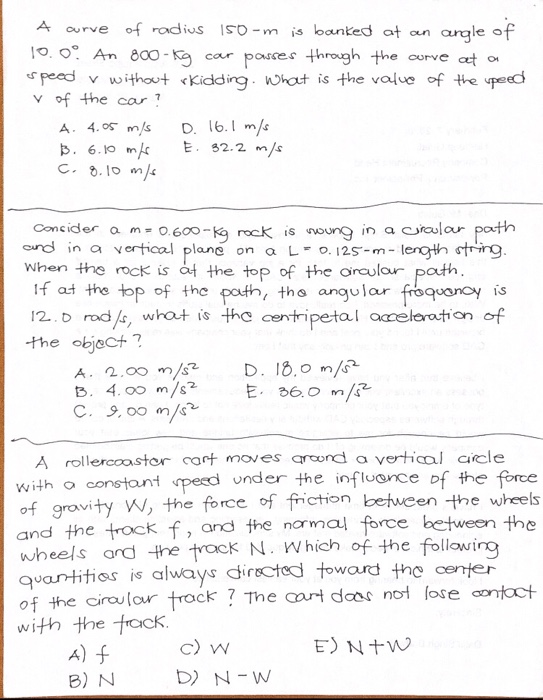 A curve of radius 150-m is banked at an angle of
10.0°. An 800-kg car passes through the curve at a
speed v without skidding. What is the value of the speed
v of the car?
A. 4.05 m/s D. 16.1 m/s
B. 6.10 m/s E. 32.2 m/s
C. 8.10 m/s
Consider a m = 0.600-kg rock is swung in a circular path
and in a vertical plane on a L = 0.125-m-length string.
When the rock is at the top of the circular path.
If at the top of the path, the angular frequency is
12.0 rad/s, what is the centripetal acceleration of
the object?
A. 2.00 m/s² D. 18.0 m/s²
B. 4.00 m/s² E. 36.0 m/s²
C. 9.00 m/s²
A rollercoaster cart moves around a vertical circle
with a constant speed under the influence of the force
of gravity W, the force of friction between the wheels
and the track f, and the normal force between the
wheels and the track N. Which of the following
quantities is always directed toward the center
of the circular track? The cart does not lose contact
with the track.
A) f C) W E) N+W
B) N D) N-W